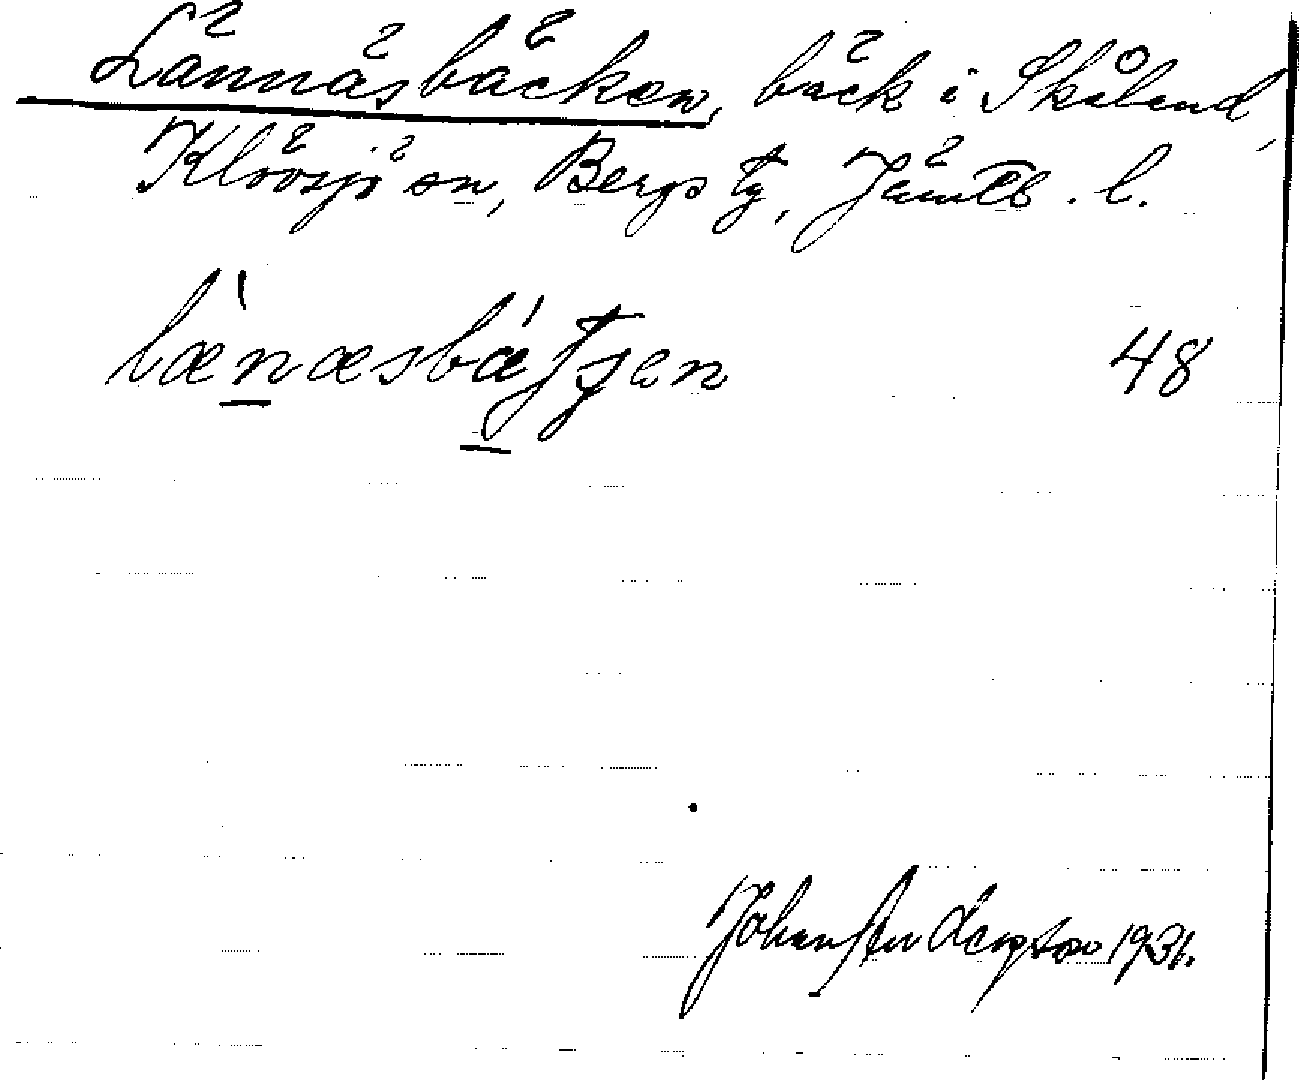 Lännäsbäcken, bäck i Skåland,
Klövsjö sn, Bergs tg, Jämtls. l.
lænæsbætʃen 48
Johan Anderzson 1931.